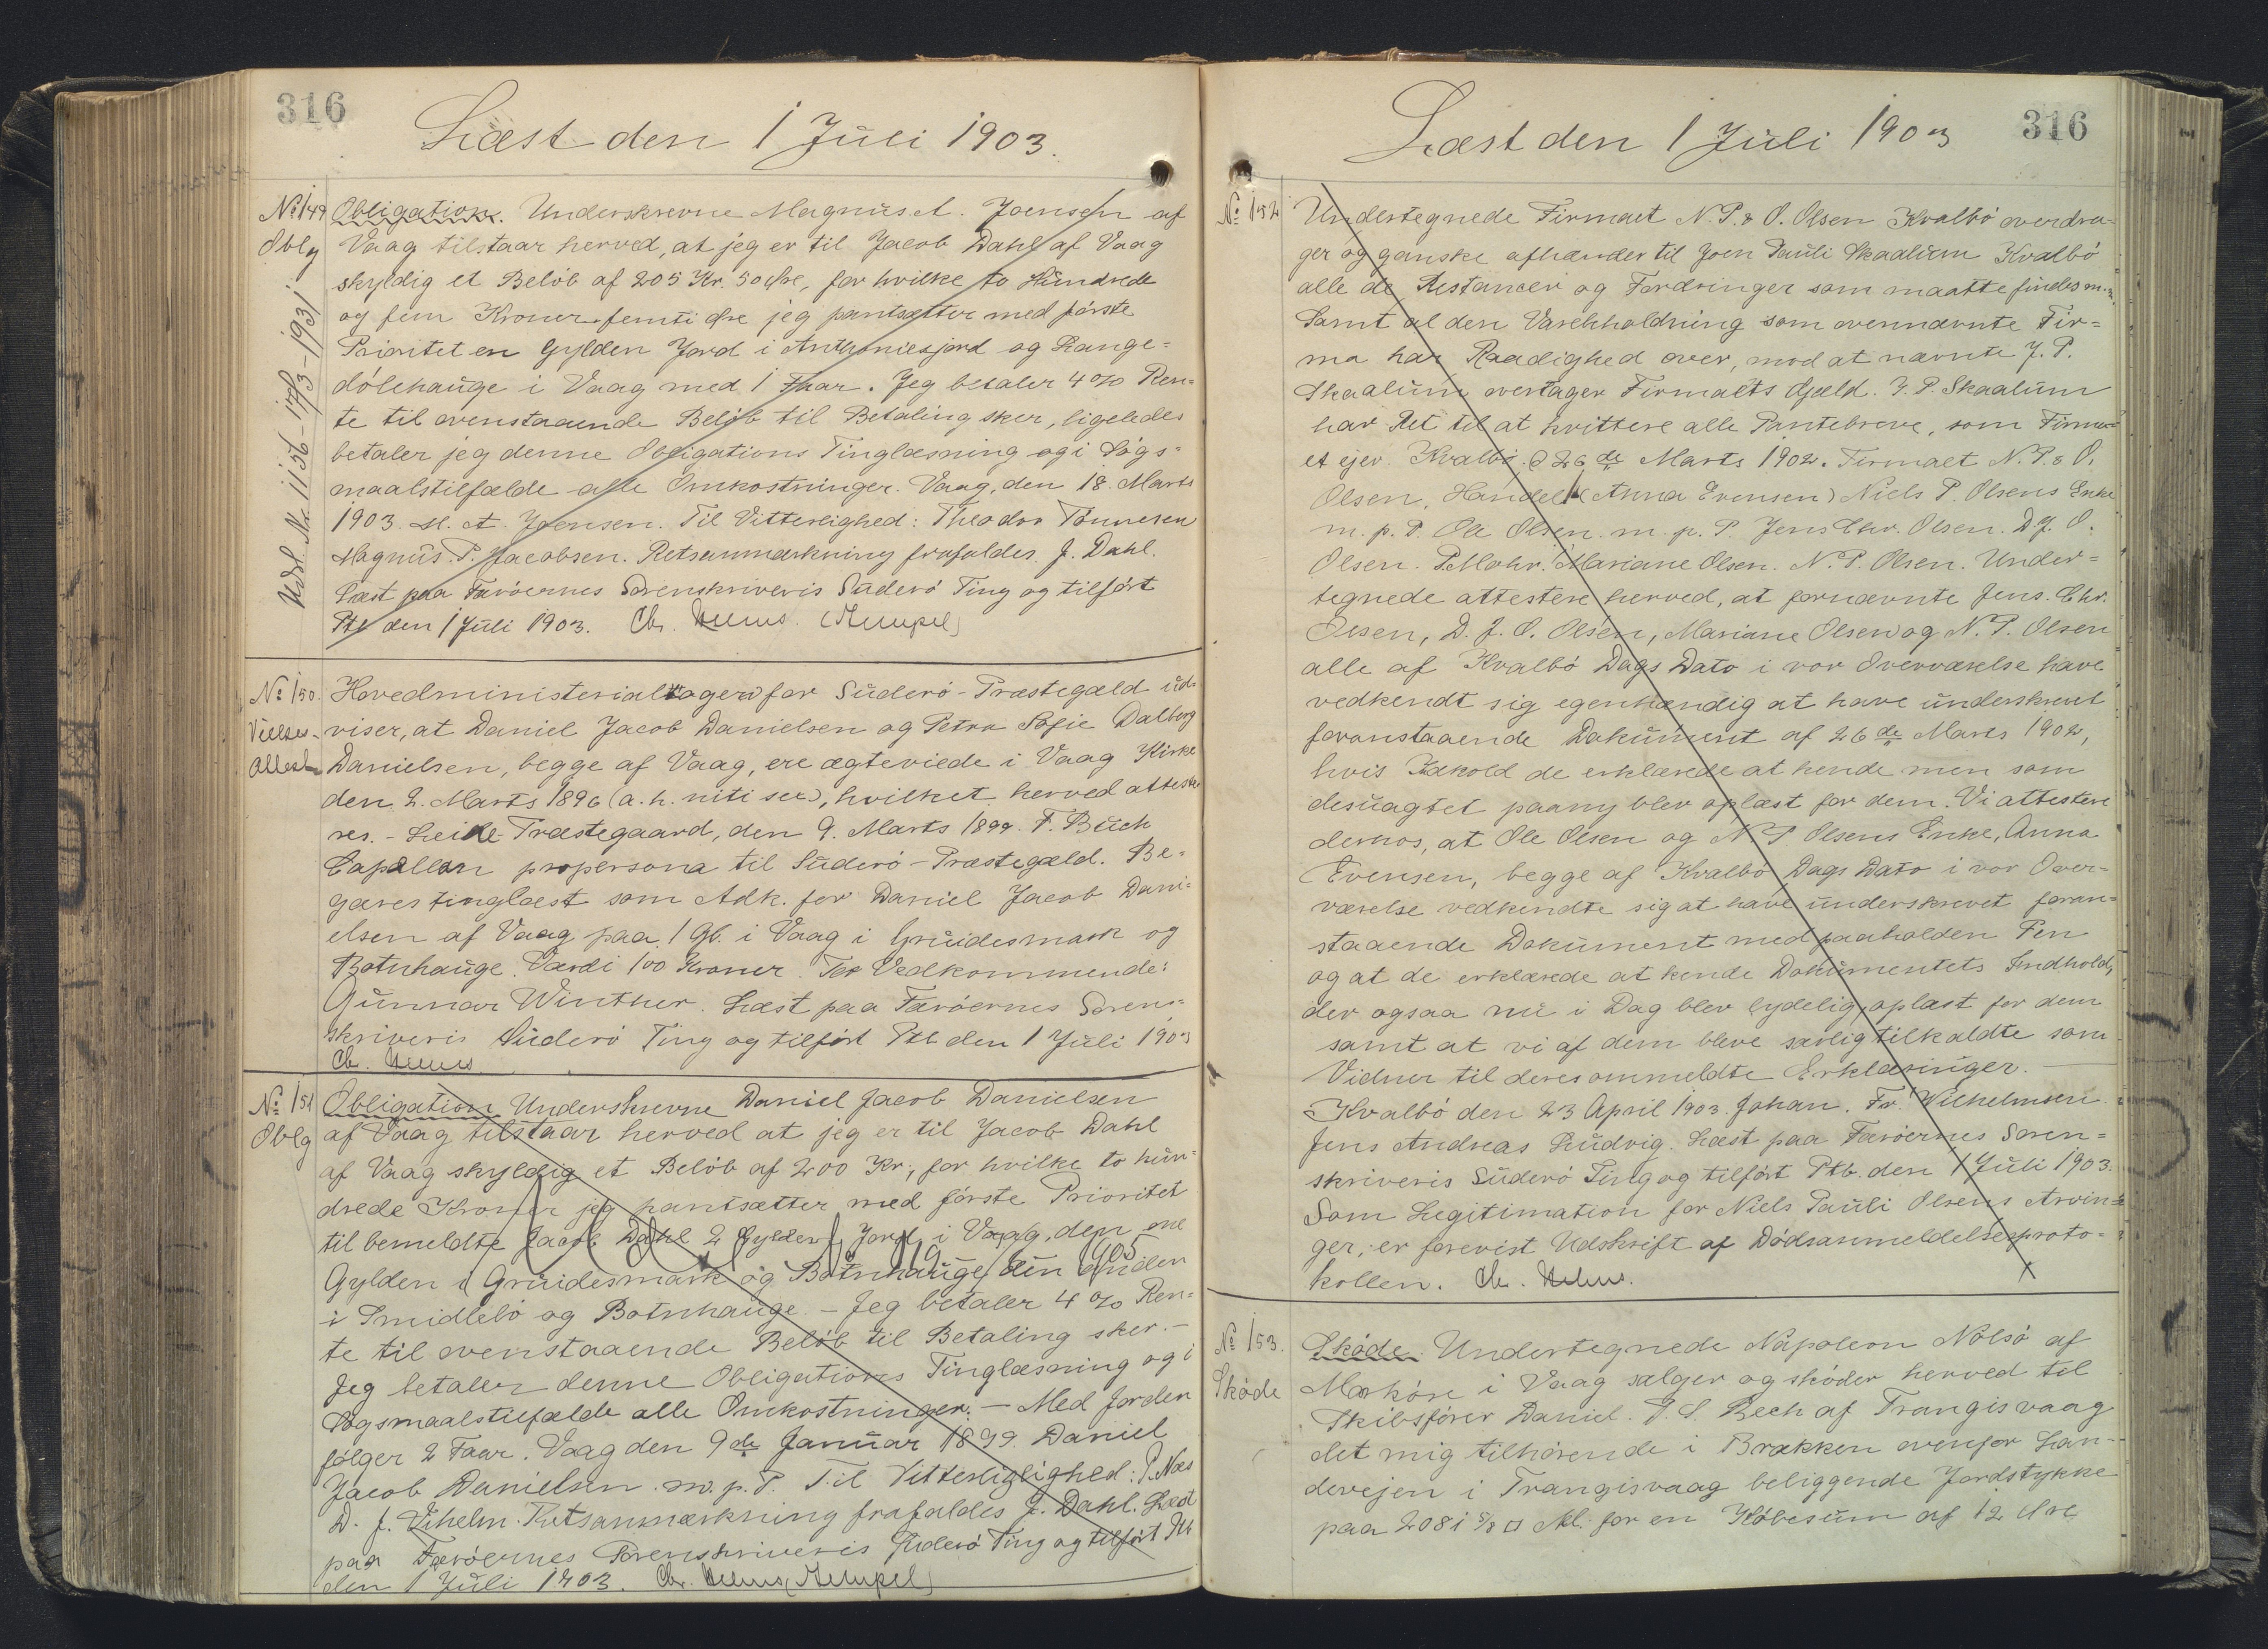 316
Læst den 1 Juli 1903.
No 149
Oblg
Udsl. Nr. 1156 - 17/3 - 1931
Obligation. Underskrevne Magnus A. Joensen af
Vaag tilstaar herved, at jeg er til Jacob Dahl af Vaag
skyldig et Beløb af 205 Kr. 50 Øre, for hvilke to Hundrede
og fem Kroner femti Øre jeg pantsætter med første
Prioritet en Gylden Jord i Anthoniesjord og Range=
dølehauge i Vaag med 1 Faar. Jeg betaler 4 % Ren=
te til ovenstaaende Beløb til Betaling sker, ligeledes
betaler jeg denne Obligations Tinglæsning og i Søgs=
maalstilfælde alle Omkostninger. Vaag, den 18. Marts
1903. M. A. Joensen. Til Vitterlighed: Theodor Tønnesen
Magnus. P. Jacobsen. Retsanmærkning frafaldes. J. Dahl.
Læst paa Færøernes Sorenskriveris Suderø Ting og tilført
Ptb den 1 Juli 1903. Chr. Helms. (Stempel)
No 150.
Vielses-
Attest
Hovedministerialbogen for Suderø-Præstegæld ud-
viser, at Daniel Jacob Danielsen og Petra Sofie Dalberg
Danielsen, begge af Vaag, ere ægteviede i Vaag Kirke
den 2. Marts 1896 (a. h. niti sex), hvilket herved atteste
res. - Præstegaard, den 9. Marts 1899. F. Buch
Capellan propersona til Suderø-Præstegæld. Be-
gæres tinglæst som Adk. for Daniel Jacob Dani=
elsen af Vaag paa 1 Gl. i Vaag i Gruidesmark og
Botnhauge. Værdi 100 Kroner. For Vedkommende:
Gunnar Winther. Læst paa Færøernes Soren=
skriveris Suderø Ting og tilført Ptb den 1 Juli 1903
Chr. Helms.
No 151
Oblg
Obligation Underskrevne Daniel Jacob Danielsen
af Vaag tilstaar herved at jeg er til Jacob Dahl
af Vaag skyldig et Beløb af 200 Kr., for hvilke to hun=
drede Kroner jeg pantsætter med første Prioritet
til bemeldte Jacob Dahl 2 Gylden Jord i Vaag, den ene
Gylden i Gruidesmark og Botnhauge den anden
i Smidlebø og Botnhauge. - Jeg betaler 4 % Ren=
te til ovenstaaende Beløb til Betaling sker. -
Jeg betaler denne Obligations Tinglæsning og i
Søgsmaalstilfælde alle Omkostninger. - Med Jorden
følger 2 Faar. Vaag den 9de Januar 1899. Daniel
Jacob Danielsen m. p. P. Til Vitterliglighed: P. Næs
D. J. Vilhelm. Retsanmærkning frafaldes J. Dahl. Læst
paa Færøernes Sorenskriveris Suderø Ting og tilført Ptb
den 1 Juli 1903. Chr. Helms (Stempel)
316
Læst den 1 Juli 1903
No 152
Undertegnede Firmaet N. P. & O. Olsen Kvalbø overdra-
ger og ganske afhænder til Joen Pauli Skaalum Kvalbø
alle de Restancer og Fordringer som maatte findes m.m.
Samt al den Varebeholdning som ovennævnte Fir=
ma har Raadighed over, mod at nævnte J. P.
Skaalum overtager Firmaets Gjæld. J. P. Skaalum
har Ret til at kvittere alle Pantebreve, som Firma=
et ejer Kvalbø. d 26de Marts 1902. Firmaet N. P. & O.
Olsen, Handel (Anna Evensen) Niels P. Olsens Enke
m. p. P. Ole Olsen. m. p. P. Jens Chr. Olsen. D. J. O.
Olsen. P. Mohr. Mariane Olsen. N. P. Olsen. Under=
tegnede attestere herved, at fornævnte Jens. Chr.
Olsen, D. J. O. Olsen, Mariane Olsen og N. P. Olsen
alle af Kvalbø Dags Dato i vor Overværelse have
vedkendt sig egenhændig at have underskrevet
foranstaaende Dokument af 26de Marts 1902,
hvis Indhold de erklærede at kende men som
desuagtet paany blev oplæst for dem. Vi attestere
derhos, at Ole Olsen og N P Olsens Enke, Anna
Evensen, begge af Kvalbø Dags Dato i vor Over-
værelse vedkendte sig at have underskrevet foran=
staaende Dokument med paaholden Pen
og at de erklærede at kende Dokumentets Indhold,
der ogsaa nu i Dag blev lydelig oplæst for dem
samt at vi af dem bleve særlig tilkaldte som
Vidner til deres ommeldte Erklæringer.
Kvalbø den 23 April 1903. Johan. Fr. Vilhelmsen.
Jens Andreas Ludvig. Læst paa Færøernes Soren=
skriveris Suderø Ting og tilført Ptb. den 1 Juli 1903.
Som Legitimation for Niels Pauli Olsens Arvin=
ger, er forevist Udskrift af Dødsanmeldelsesproto=
kollen. Chr. Helms.
No 153.
Skøde
Skøde. Undertegnede Napoleon Nolsø af
Mørkøre i Vaag sælger og skøder herved til
Skibsfører Daniel. J. S. Bech af Trangisvaag
det mig tilhørende i Brækken ovenfor Lan-
devejen i Trangisvaag beliggende Jordstykke
paa 2081 5/8 □ Al. for en Købesum af 12 Øre